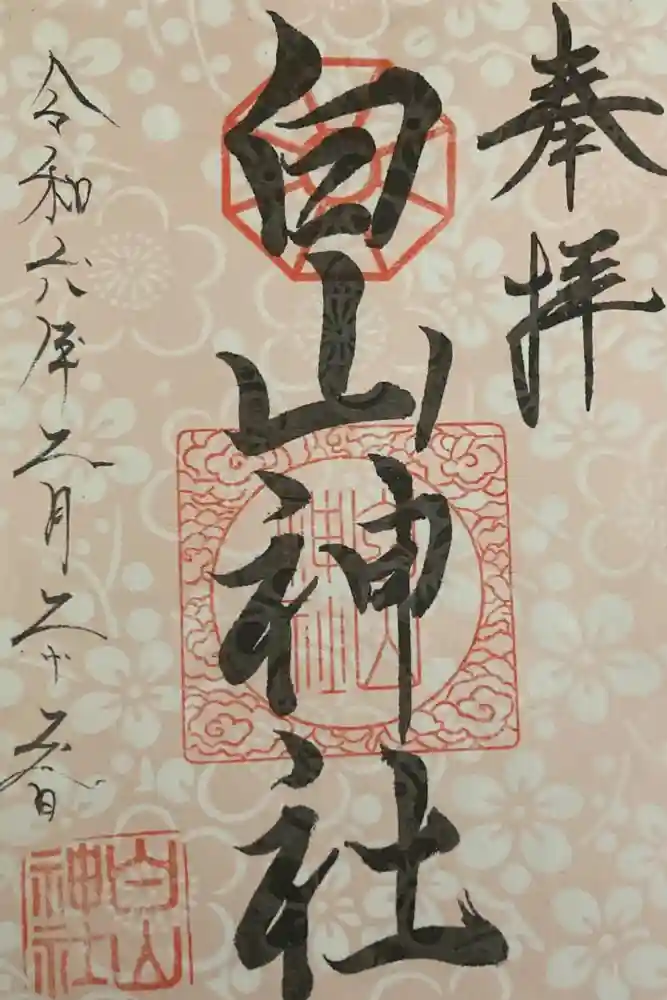 奉拝
白山神社
白山
神社
白山
神社
令和六年二月二十日